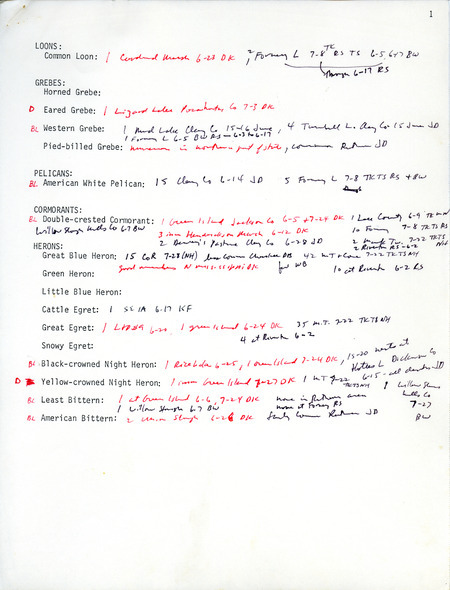 1
LOONS:
Common Loon: 1 Cardinal Marsh 6-23 DK, 2 Forney L 7-8 TK RS TS 6-5, 6+7 BW
through 6-17 RS
GREBES:
Horned Grebe:
D Eared Grebe: 1 Lizard Lake Pocahontas Co 7-3 DK
BL Western Grebe: 1 Mud Lake Clay Co 15-16 June, 4 Trumbull L. Clay Co 15 June JD
1 Forney L 6-5 BW RS
Pied-billed Grebe: numerous in northern part of state, common Ruthven JD
PELICANS:
BL American White Pelican: 15 Clay Co 6-14 JD 5 Forney L 7-8 TK TS RS + BW
CORMORANTS:
BL Double-crested Cormorant: 1 Green Island Jackson Co 6-5 + 7-24 DK 1 Lee County 6-9
Willow Slough Mills Co 6-7 BW 3 imm Hendrickson Marsh 6-12 DK 10 Forney 7-8 TK TS RS
2 Dewey's Pasture Clay Co 6-28 JD 2 Mark Tw. 7-22 TK TS NH
2 Riverton RS 6-2
HERONS:
Great Blue Heron: 15 Co R 7-28 (NH) less common Cherokee DB 42 MT 7-22 TK TS NH
good numbers DK few WB 10 at Riverton 6-2 RS
Green Heron:
Little Blue Heron:
Cattle Egret: 1 SE IA 6-17 KF
Great Egret: 1 6-20, 1 green island 6-24 DK 35 M.T. 7-22 TK TS NH
4 at Riverton 6-2
Snowy Egret:
BL Black-crowned Night Heron: 1 Rice Lake 6-25, 1 Green Island 7-24 DK, 15-20 nests at
Hottes L Dickinson Co
D Yellow-crowned Night Heron: 1 imm Green Island 7-27 DK 1 MT 7-22 TK TS NH 6-15 - all deserted JD
BL Least Bittern: 1 at Green Island 6-6, 7-24 DK none in Ruthven area 1 Willow Slough
1 Willow Slough 6-7 BW none at Forney RS Mills Co
BL American Bittern: 2 Slough 6-26 DK fairly common Ruthven JD 7-27
BW